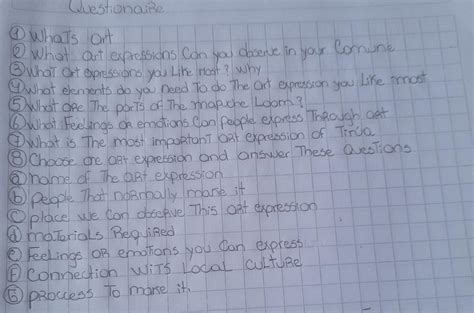 Questionaire
① Whats art
② What art expressions Can you observe in your Comune
③ What art expressions you Like most? Why
④ What elements do you need To do The art expression you Like most
⑤ What are The parts of The mapuche Loom?
⑥ What Feelings or emotions Can people express Through art
⑦ What is The most important art expression of Tirúa
⑧ Choose one art expression and answer These Questions
ⓐ name of The art expression
ⓑ people That normally make it
ⓒ place we Can observe This art expression
ⓓ materials Required
ⓔ Feelings or emotions you Can express
Ⓕ Connection wits Local culture
Ⓖ proccess To make it.